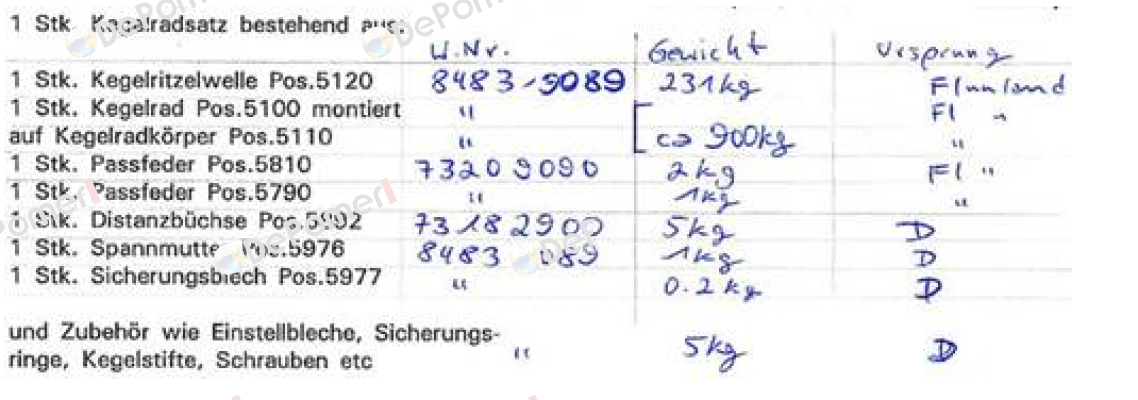 1 Stk. Kegelradsatz bestehend aus:
W.Nr. Gewicht Ursprung
1 Stk. Kegelritzelwelle Pos.5120 8483 9089 231kg FInnland
1 Stk. Kegelrad Pos.5100 montiert " FI "
auf Kegelradkörper Pos.5110 " ca 900kg "
1 Stk. Passfeder Pos.5810 73209090 2kg FI "
1 Stk. Passfeder Pos.5790 " 1kg "
1 Stk. Distanzbüchse 73182900 5kg D
1 Stk. Spannmutter Pos.5976 8483 1kg D
1 Stk. Sicherungsblech Pos.5977 " 0.2kg D
und Zubehör wie Einstellbleche, Sicherungs-
ringe, Kegelstifte, Schrauben etc " 5kg D